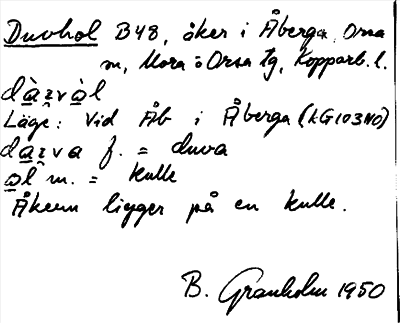 Duvhol B48, åker i Åberga, Orsa
m, Mora o Orsa tg, Kopparb. l.
Läge: Vid Åb i Åberga (LG103NO)
f. = duva
ol m. = kulle
Åkern ligger på en kulle.
B. Granholm 1950